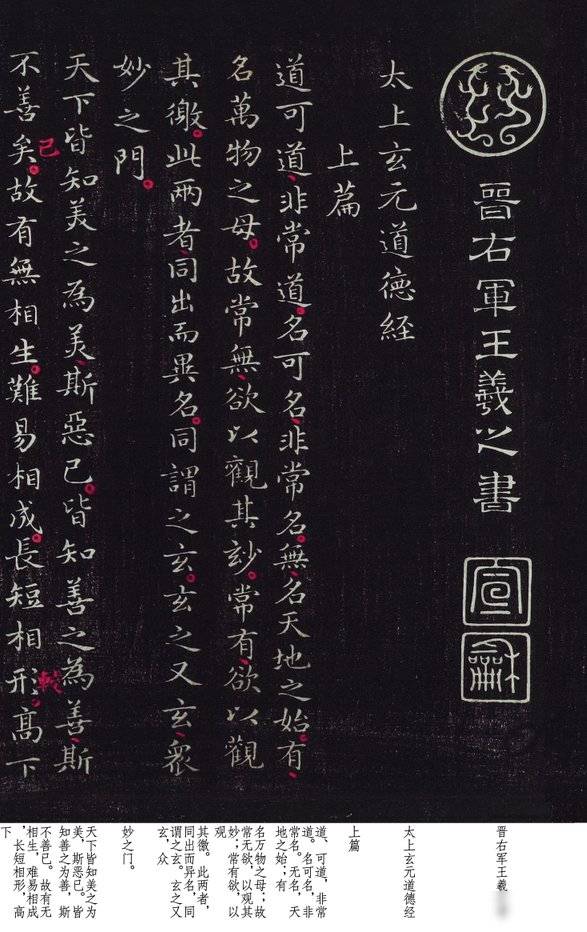 晉右軍王羲之書
宣
龢
太上玄元道德經
上篇
道可道、非常道。名可名、非常名。無、名天地之始。有、
名萬物之母。故常無、欲以觀其玅。常有、欲以觀
其徼。此兩者、同出而異名。同謂之玄。玄之又玄、眾
妙之門。
天下皆知美之為美、斯惡已。皆知善之為善、斯
不善矣。故有無相生。難易相成。長短相形。高下
已
較
晋右军王羲
太上玄元道德经
上篇
道、可道，非常
道。名可名，非
常名。无名，天
地之始；有
名万物之母；故
常无欲，以观其
妙；常有欲，以
观
其徼。此两者，
同出而异名，同
谓之玄。玄之又
玄，众
妙之门。
天下皆知美之为
美，斯恶已。皆
知善之为善，斯
不善已。故有无
相生，难易相成
，长短相形，高
下